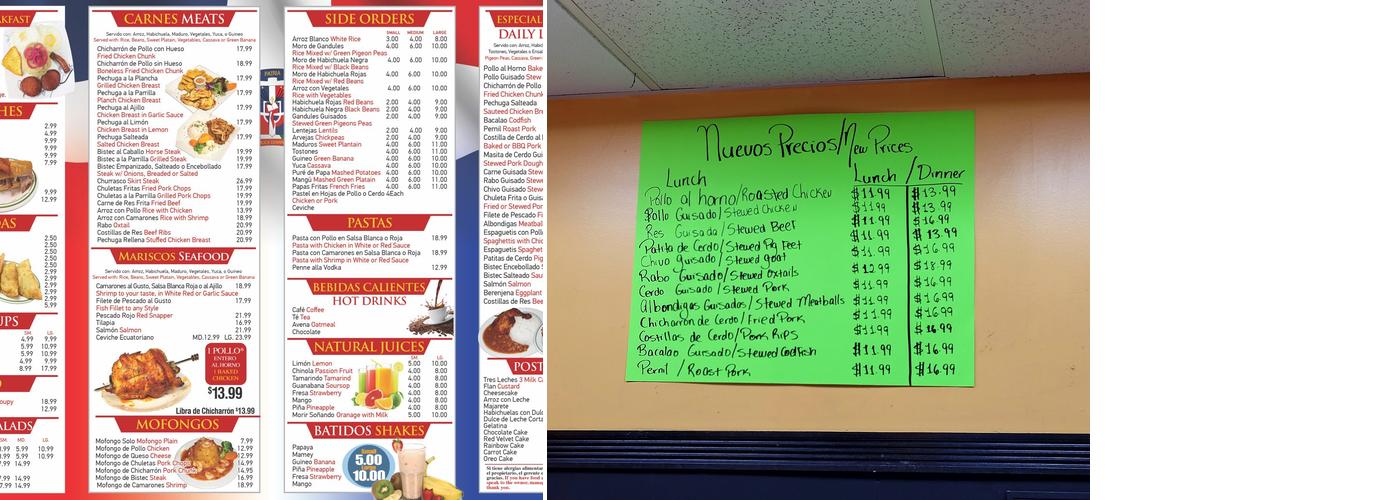 AKFAST
ge.
HES
2.99
4.99
9.99
9.99
9.99
7.99
9.99
12.99
DAS
2.50
2.50
2.50
2.50
2.50
2.50
2.99
2.99
2.99
2.99
5.99
UPS
SM. LG.
4.99 9.99
5.99 10.99
5.99 10.99
4.99 9.99
8.99 17.99
oupy 18.99
12.99
ALADS
SM. MD. LG.
3.99 5.99 10.99
5.99 10.99
7.99 14.99
7.99 14.99
CARNES MEATS
Servido con: Arroz, Habichuela, Maduro, Vegetales, Yuca, o Guineo
Served with: Rice, Beans, Sweet Plantain, Vegetables, Cassava or Green Banana
Chicharrón de Pollo con Hueso 17.99
Fried Chicken Chunk
Chicharrón de Pollo sin Hueso 18.99
Boneless Fried Chicken Chunk
Pechuga a la Plancha 17.99
Grilled Chicken Breast
Pechuga a la Parrilla 17.99
Planch Chicken Breast
Pechuga al Ajillo 17.99
Chicken Breast in Garlic Sauce
Pechuga al Limón 17.99
Chicken Breast in Lemon
Pechuga Salteada 17.99
Salted Chicken Breast
Bistec al Caballo Horse Steak 19.99
Bistec a la Parrilla Grilled Steak 19.99
Bistec Empanizado, Salteado o Encebollado 17.99
Steak w/ Onions, Breaded or Salted
Churrasco Skirt Steak 26.99
Chuletas Fritas Fried Pork Chops 17.99
Chuletas a la Parrilla Grilled Pork Chops 17.99
Carne de Res Frita Fried Beef 19.99
Arroz con Pollo Rice with Chicken 13.99
Arroz con Camarones Rice with Shrimp 18.99
Rabo Oxtail 20.99
Costillas de Res Beef Ribs 20.99
Pechuga Rellena Stuffed Chicken Breast 20.99
MARISCOS SEAFOOD
Servido con: Arroz, Habichuela, Maduro, Vegetales, Yuca, o Guineo
Served with: Rice, Beans, Sweet Plantain, Vegetables, Cassava or Green Banana
Camarones al Gusto, Salsa Blanca Roja o al Ajillo 18.99
Shrimp to your taste, in White Red or Garlic Sauce
Filete de Pescado al Gusto 17.99
Fish Fillet to any Style
Pescado Rojo Red Snapper 21.99
Tilapia 16.99
Salmón Salmon 21.99
Ceviche Ecuatoriano MD.12.99 LG. 23.99
1 POLLO
ENTERO
AL HORNO
1 BAKED
CHICKEN
$13.99
Libra de Chicharrón $13.99
MOFONGOS
Mofongo Solo Mofongo Plain 7.99
Mofongo de Pollo Chicken 12.99
Mofongo de Queso Cheese 12.99
Mofongo de Chuletas Pork Chops 14.99
Mofongo de Chicharrón Pork Chunk 14.95
Mofongo de Bistec Steak 16.99
Mofongo de Camarones Shrimp 18.99
PATRIA
SIDE ORDERS
SMALL MEDIUM LARGE
Arroz Blanco White Rice 3.00 4.00 8.00
Moro de Gandules 4.00 6.00 10.00
Rice Mixed w/ Green Pigeon Peas
Moro de Habichuela Negra 4.00 6.00 10.00
Rice Mixed w/ Black Beans
Moro de Habichuelas Rojas 4.00 6.00 10.00
Rice Mixed w/ Red Beans
Arroz con Vegetales 4.00 6.00 10.00
Rice with Vegetables
Habichuelas Rojas Red Beans 2.00 4.00 9.00
Habichuela Negra Black Beans 2.00 4.00 9.00
Gandules Guisados 2.00 4.00 9.00
Stewed Green Pigeons Peas
Lentejas Lentils 2.00 4.00 9.00
Arvejas Chickpeas 2.00 4.00 9.00
Maduros Sweet Plantain 4.00 6.00 11.00
Tostones 4.00 6.00 11.00
Guineo Green Banana 4.00 6.00 10.00
Yuca Cassava 4.00 6.00 10.00
Puré de Papa Mashed Potatoes 4.00 6.00 10.00
Mangú Mashed Green Plantain 4.00 6.00 11.00
Papas Fritas French Fries 4.00 6.00 11.00
Pastel en Hojas de Pollo o Cerdo 4Each
Chicken or Pork
Ceviche
PASTAS
Pasta con Pollo en Salsa Blanca o Roja 18.99
Pasta with Chicken in White or Red Sauce
Pasta con Camarones en Salsa Blanca o Roja 18.99
Pasta with Shrimp in White or Red Sauce
Penne alla Vodka 12.99
BEBIDAS CALIENTES
HOT DRINKS
Café Coffee
Té Tea
Avena Oatmeal
Chocolate
NATURAL JUICES
SM LG.
Limón Lemon 5.00 10.00
Chinola Passion Fruit 4.00 8.00
Tamarindo Tamarind 4.00 8.00
Guanabana Soursop 4.00 8.00
Fresa Strawberry 4.00 8.00
Mango 4.00 8.00
Piña Pineapple 4.00 8.00
Morir Soñando Oranage with Milk 5.00 10.00
BATIDOS SHAKES
Papaya
Mamey
Guineo Banana
Piña Pineapple
Fresa Strawberry
Mango
Small
5.00
Large
10.00
ESPECIAL
DAILY L
Servido con: Arroz, Habi
Tostones, Vegetales o Ensal
Pigeon Peas, Cassava, Green
Pollo al Horno Bake
Pollo Guisado Stew
Chicharrón de Pollo
Fried Chicken Chunk
Pechuga Salteada
Sauteed Chicken Bre
Bacalao Codfish
Pernil Roast Pork
Costilla de Cerdo al
Baked or BBQ Pork
Masita de Cerdo Gui
Stewed Pork Dough
Carne Guisada Stew
Rabo Guisado Stewe
Chivo Guisado Stew
Chuleta Frita o Guisa
Fried or Stewed Por
Filete de Pescado Fi
Albondigas Meatbal
Espaguetis con Poll
Spaghettis with Chic
Espaguetis Spaghet
Patitas de Cerdo Pig
Bistec Encebollado S
Bistec Salteado Sau
Salmón Salmon
Berenjena Eggplant
Costillas de Res Bee
POST
Tres Leches 3 Milk Ca
Flan Custard
Cheesecake
Arroz con Leche
Majarete
Habichuelas con Dulc
Dulce de Leche Corta
Gelatina
Chocolate Cake
Red Velvet Cake
Rainbow Cake
Carrot Cake
Oreo Cake
Si tiene alergias alimentar
el propietario, el gerente o
sigas. If you have food a
speak to the owner, manag
thank you.
Nuevos Precios/New Prices
Lunch Lunch / Dinner
Pollo al horno/Roasted Chicken $11.99 $13.99
Pollo Guisado/Stewed Chicken $11.99 $13.99
Res Guisado/Stewed Beef $11.99 $16.99
Patita de Cerdo/Stewed Pig Feet $11.99 $13.99
Chivo guisado/Stewed goat $11.99 $16.99
Rabo Guisado/Stewed Oxtails $12.99 $18.99
Cerdo Guisado/Stewed Pork $11.99 $16.99
Albondigas Guisados/Stewed Meatballs $11.99 $16.99
Chicharron de Cerdo/Fried Pork $11.99 $16.99
Costillas de Cerdo/Pork Rips $11.99 $16.99
Bacalao Guisado/Stewed Codfish $11.99 $16.99
Pernil /Roast Pork $11.99 $16.99